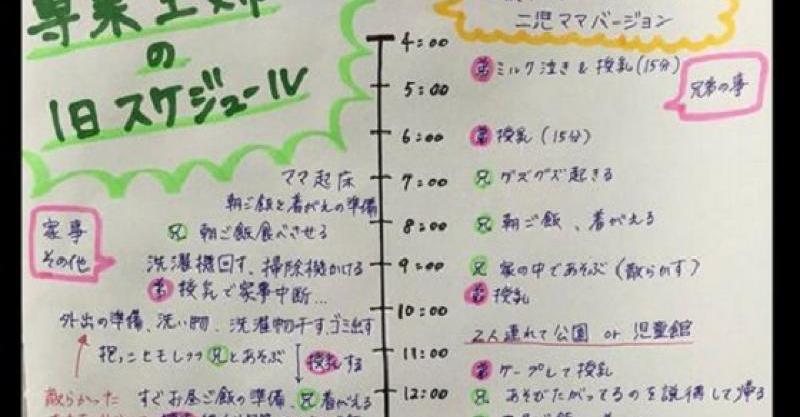 専業主婦
の
1日スケジュール
二児ママバージョン
兄弟の事
家事
その他
4:00
弟 ミルク泣き & 授乳 (15分)
5:00
6:00
弟 授乳 (15分)
ママ起床
7:00
兄 グズグズ起きる
朝ご飯と着がえの準備
兄 朝ご飯食べさせる
8:00
兄 朝ご飯、着がえる
洗濯機回す、掃除機かける
9:00
兄 家の中であそぶ (散らかす)
弟 授乳で家事中断…
弟 授乳
10:00
外出の準備、洗い物、洗濯物干す、ゴミ出す
2人連れて公園 or 児童館
抱っこヒモしつつ兄とあそぶ
授乳する
11:00
弟 ケープして授乳
散らかった
すぐお昼ご飯の準備、兄着がえる
12:00
兄 あそびたがってるのを説得して帰る